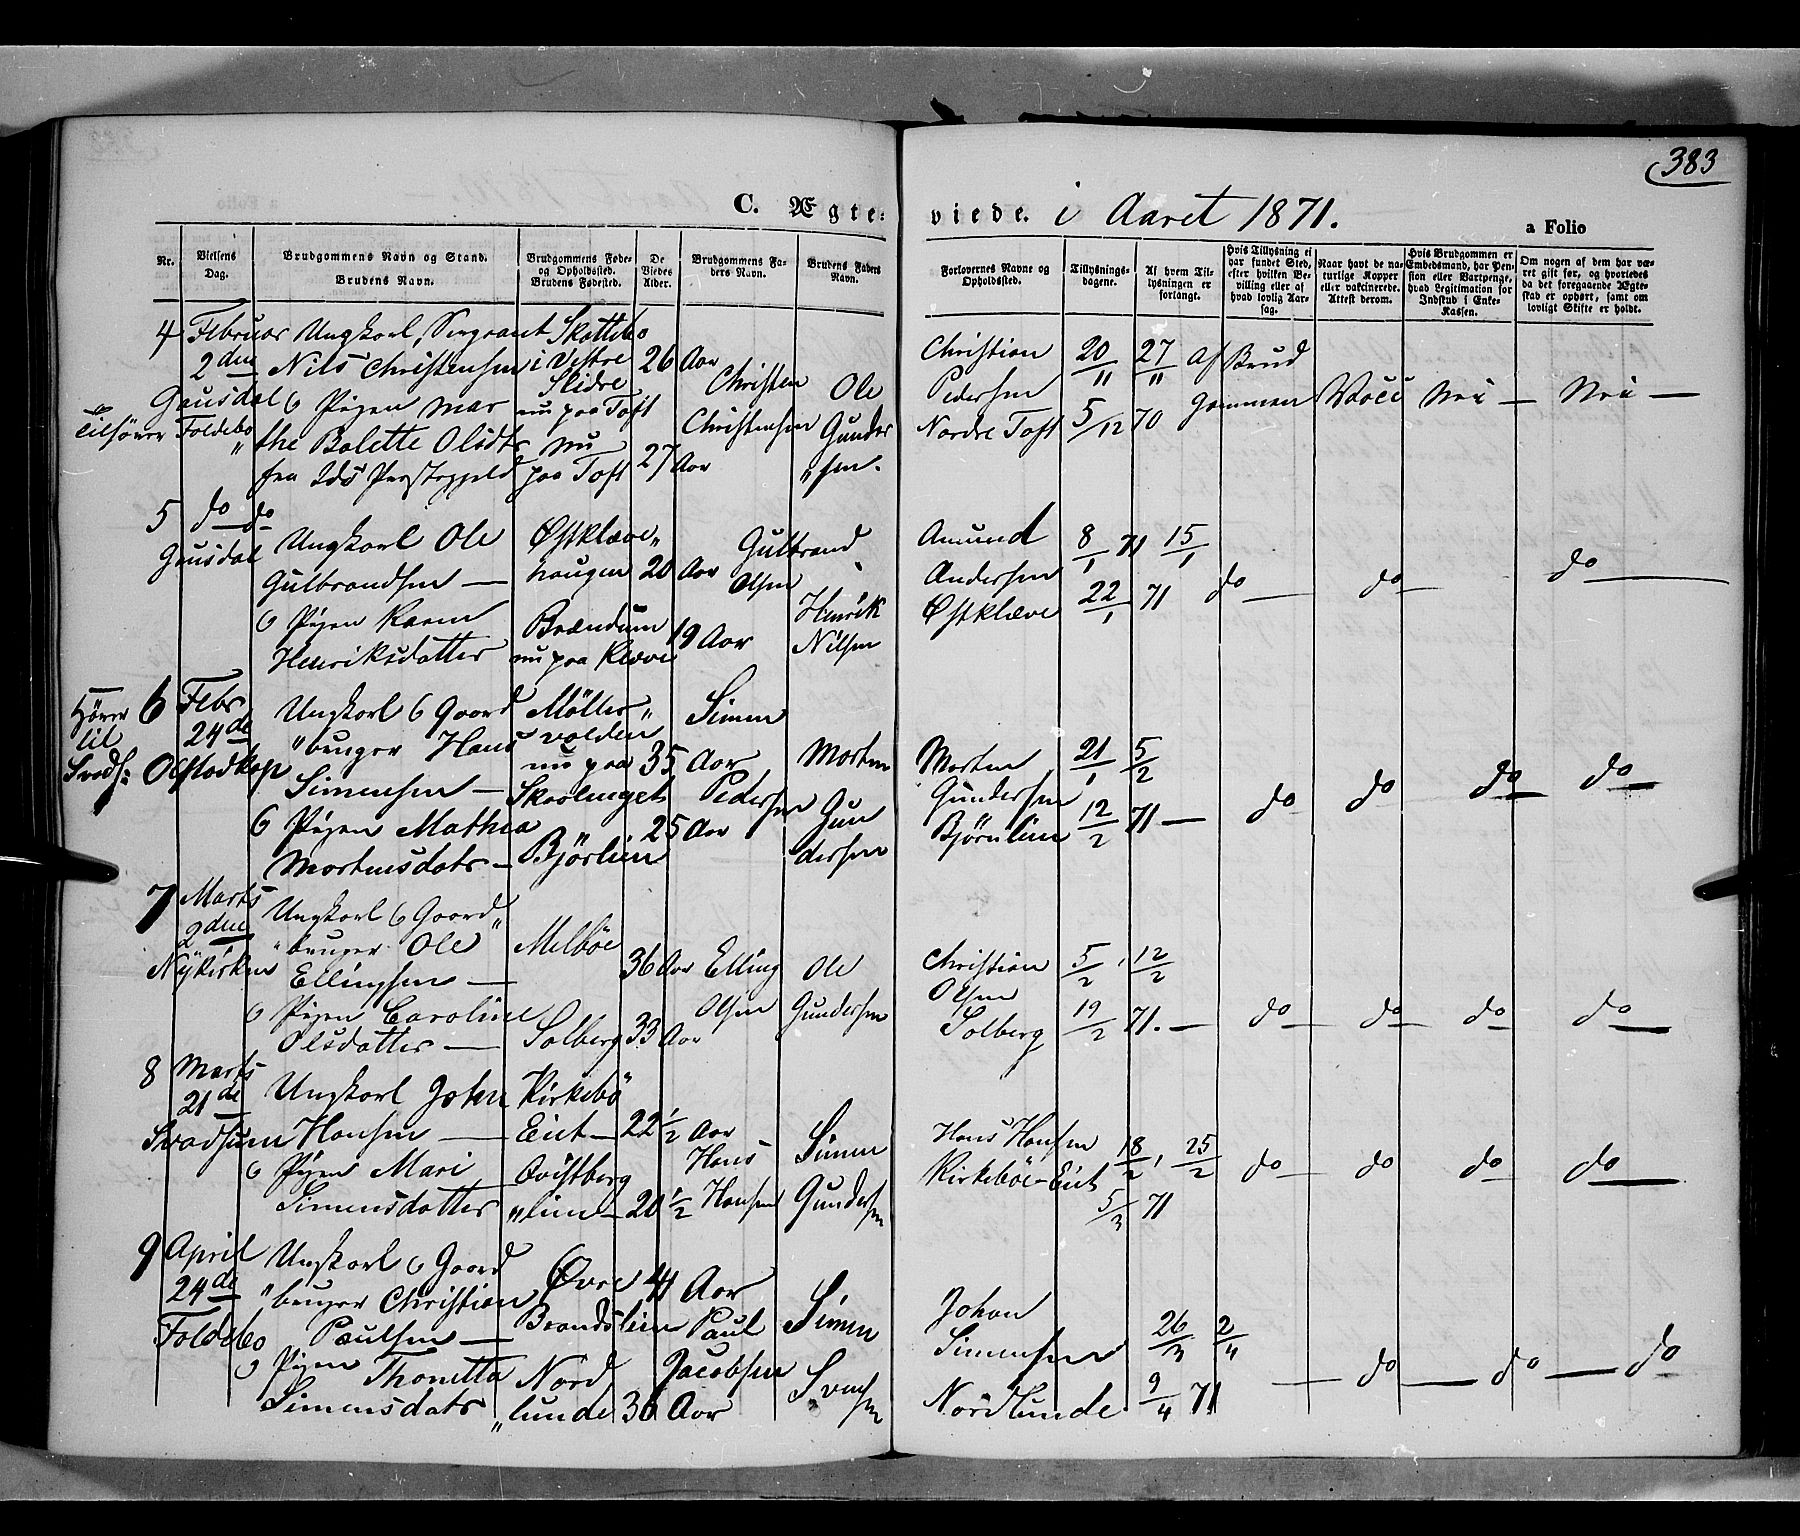 383
C. Ægte-viede. i Aaret 1871.
a Folio
Nr.
Vielsens Dag.
Brudgommens Navn og Stand. Brudens Navn.
Brudgommens Føde- og Opholdssted. Brudens Fødested.
De Viedes Alder.
Brudgommens Faders Navn.
Brudens Faders Navn.
Forlovernes Navne og Opholdssted.
Tillysningsdagene.
Af hvem Tillysningen er forlangt.
Hvis Tillysning ei har fundet Sted, efter hvilken Bevilling eller af hvad lovlig Aarsag.
Naar havt de naturlige Kopper eller vakcinerede. Attest derom.
Hvis Brudgommen er Embedsmand, har Pension eller Vartpenge, hvad Legitimation for Indskud i Enke-Kassen.
Om nogen af dem har været gift før, og hvorledes da det foregaaende Ægteskab er ophørt, samt om lovligt Skifte er holdt.
4 Februar 2den Gausdal
Tilhører Foldebo
Ungkarl, Sergeant
Nils Christensen
6 Pigen Mar
the Bolette Olsdtr
fra
Skattebo
i Vestre
Slidre
nu paa Toft
nu
paa Toft
26 Aar
27 Aar
Christen
Christensen
Ole
Gunder
"sen.
Christian
Pedersen
Nordre Toft
20/11 27/11
5/12 70
Af Brud
gommen
Vacc
Nei —
Nei —
5 do do
Gausdal
Ungkarl Ole
Gulbrandsen —
6 Pigen Karen
Henriksdatter
Østklæve"
haugen
Brændum
nu paa Klæve
20 Aar
19 Aar
Gulbrand
Olsen
Henrik
Nilsen
Amund
Andersen
Østklæve
8/1 71 15/1
22/1 71
do —
do —
do —
Hører
til
Svads:
6 Febr
24de
Olstadkap
Ungkarl 6 Gaard
"bruger Hans
Simensen —
6 Pigen Mathea
Mortensdatr —
Møller"
volden
nu paa
Bjørlien
35 Aar
25 Aar
Simen
Pedersen
Morten
Gun
dersen
Morten
Gundersen
Bjørnlien
21/1 5/2
12/2 71 —
do
do
do
do —
7 Marts
2den
Nykirken
Ungkarl 6 Gaard"
"bruger Ole
Ellingsen —
6 Pigen Caroline
Olsdatter —
Melbøe
Solberg
36 Aar
33 Aar
Elling
Olsen
Ole
Gundersen
Christian
Olsen
Solberg
5/2, 12/2
19/2 71. —
do
do
do
do —
8 Marts
21de
Svadsum
Ungkarl John
Hansen —
6 Pigen Mari
Simensdatter
Kirkebö
Eiet —
Qvistberg
"lien —
22 1/2 Aar
20 1/2
Hans
Hansen
Simen
Gundersen
Hans Hansen
Kirkebøe-Eiet
18/2, 25/2
5/3 71
do —
do
do
do —
9 April
24de
Foldebo
Ungkarl 6 Gaard
"bruger Christian
Paulsen —
6 Pigen Thonetta
Simensdatr
Øvre
Brandslien
Nord
"lunde
41 Aar
36 Aar
Paul
Jacobsen
Simen
Svensen
Johan
Simensen
Nordlunde
26/3 2/4
9/4 71
—
do
—
do
—
do